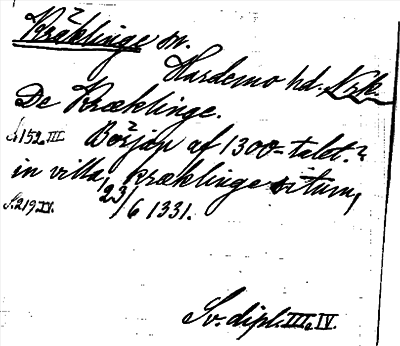 Kräklinge sn.
Hardemo hd. Nrk.
De Kræklinge.
S. 152 III Början af 1300-talet.
in villa kræklinge situm,
S. 219 IV. 23/6 1331.
Sv. dipl. III. IV.